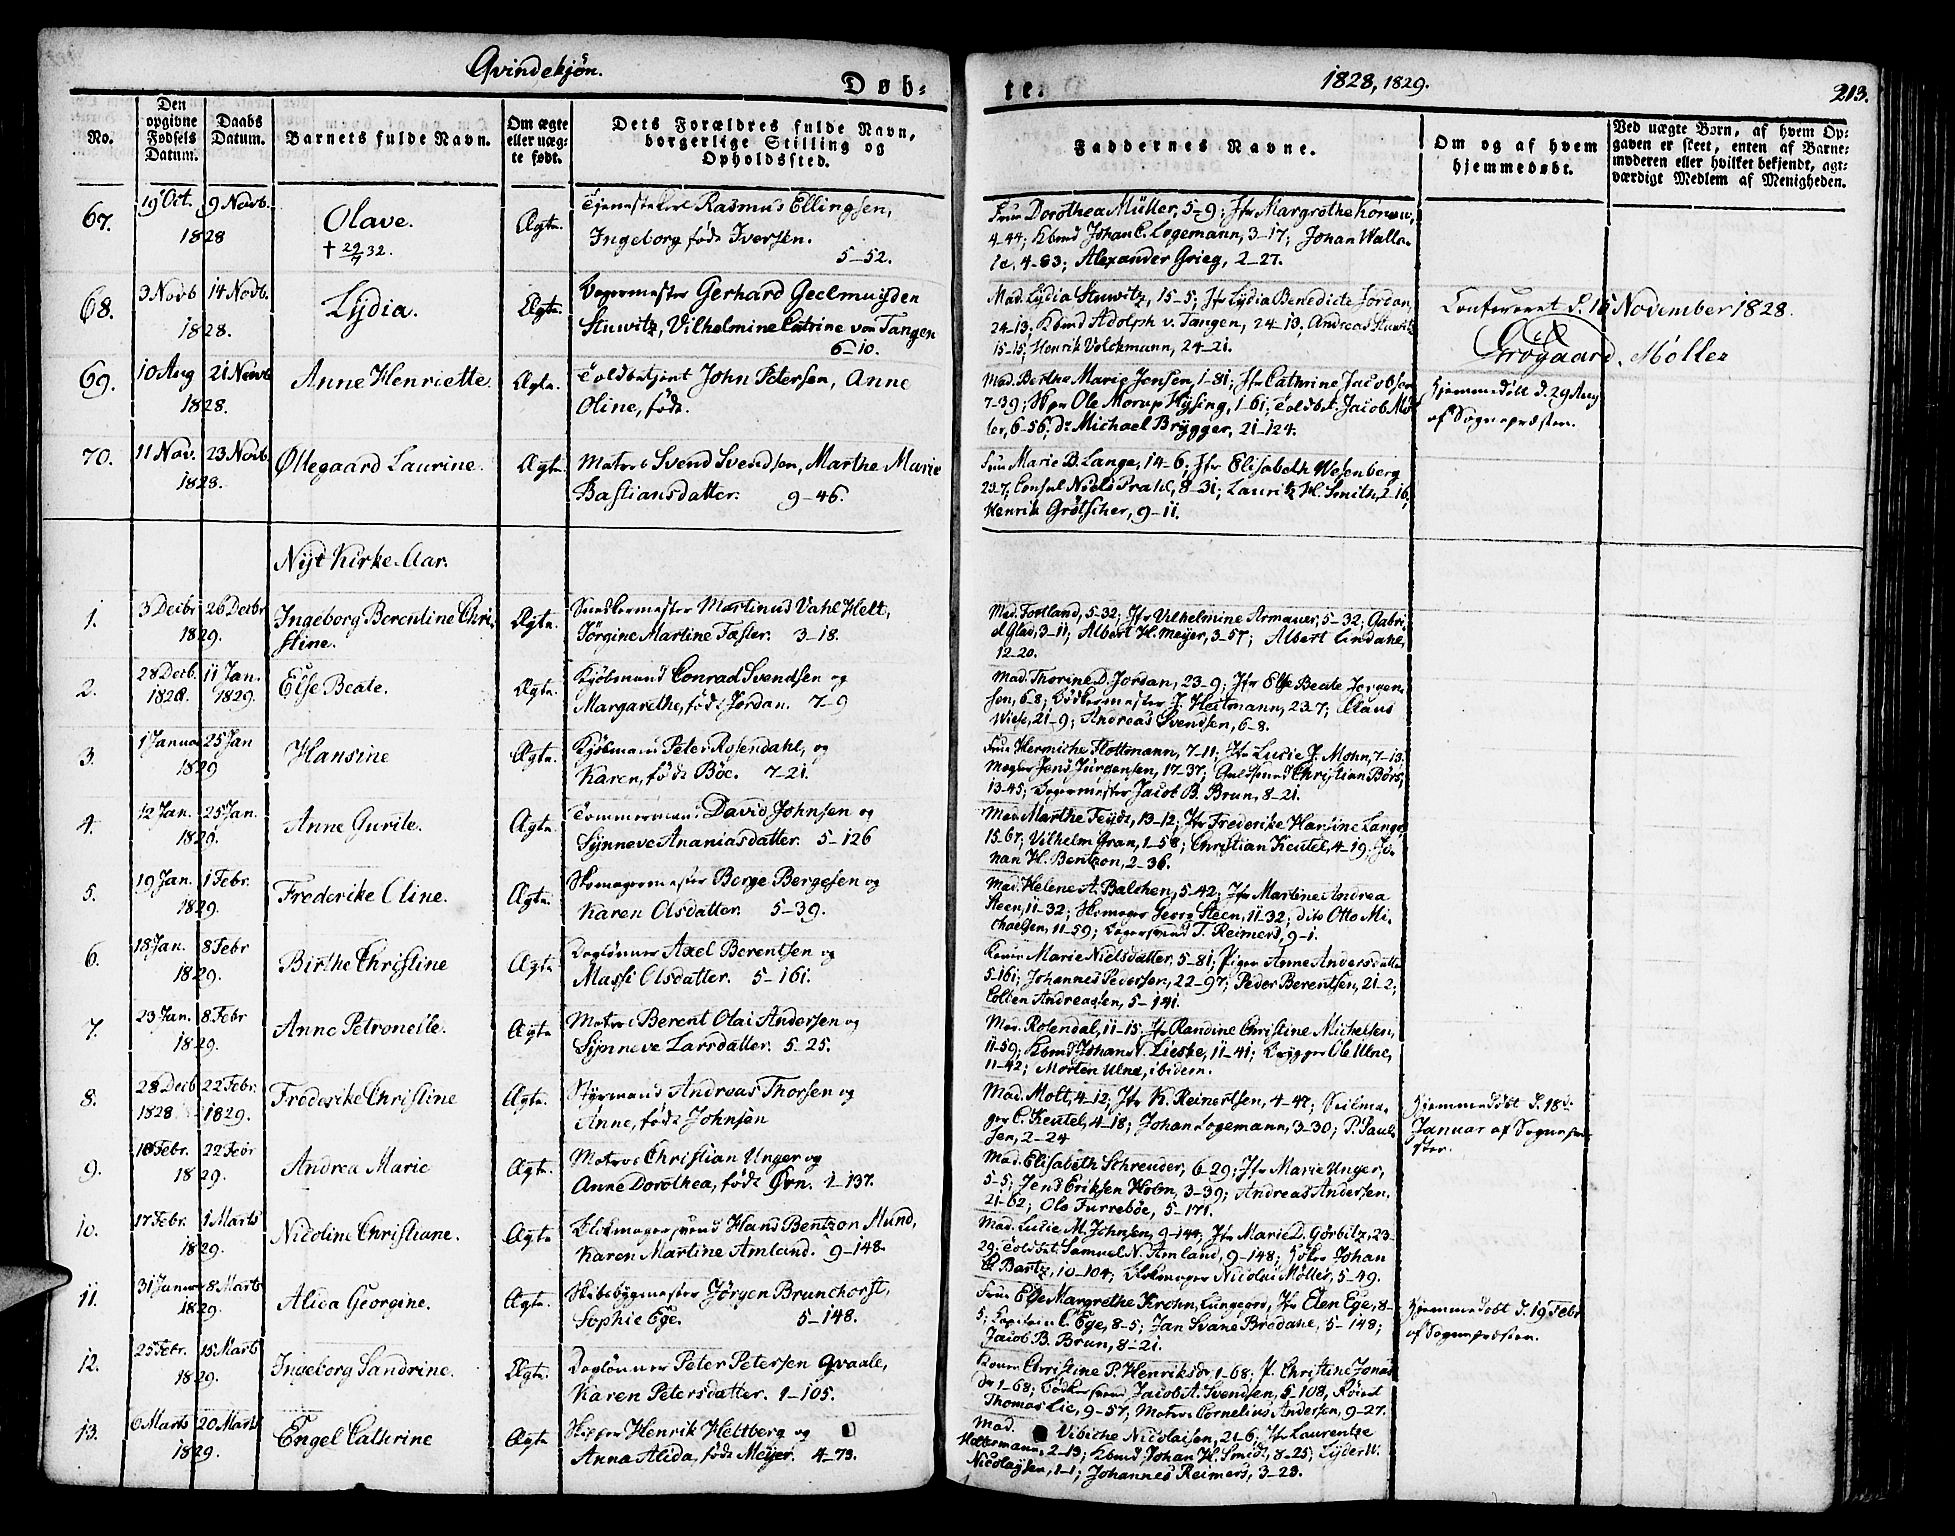 Qvindekjøn.
Døb-
te.
1828, 1829.
213.
No.
Den opgivne Fødsels Datum.
Daabs Datum.
Barnets fulde Navn.
Om ægte eller uægte født.
Dets Forældres fulde Navn, borgerlige Stilling og Opholdssted.
Faddernes Navne.
Om og af hvem hjemmedøbt.
Ved uægte Børn, af hvem Opgaven er skeet, enten af Barnemoderen eller hvilket bekjendt, agtværdigt Medlem af Menigheden.
67.
19 Oct. 9 Novb.
1828
Olave.
† 29/7 32.
Ægte.
Rasmus Ellingsen,
Ingeborg født Iversen.
5-52.
Frue Dorothea Müller, 5-9; Jfr Margrethe Konow,
4-44; Kbmd Johan C. Logemann, 3-17; Johan Walla-
ce, 4-83; Alexander Grieg, 2-27.
68.
3 Novb 14 Novb.
1828.
Lydia.
Ægte.
Bagermester Gerhard Geelmuyden
Stuwitz, Vilhelmine Catrine von Tangen
6-10.
Mad. Lydia Stuwitz, 15-5; Jfr Lydia Benedicte Jordan,
24-13; Kbmd Adolph v. Tangen, 24-13, Andreas Stuwitz
15-15; Henrik Volckmann, 24-21.
Confereret d. 15 November 1828.
Grøgaard. Møller
69.
10 Aug 21 Novb
1828.
Anne Henriette.
Ægte.
Toldbetjent John Petersen, Anne
Oline, født.
Mad. Berthe Marie Jensen, 1-81; Jfr Cathrine Jacobsen
7-39; Ole Morup Hysing, 1-61; Toldbt. Jacob Møl-
ler, 6-56; do Michael Brygger, 21-124.
Hjemmedøbt d. 29 Aug
af Sognepræsten.
70.
11 Nov. 23 Novb.
1828.
Øllegaard Laurine.
Ægte.
Matros Svend Svendsen, Marthe Marie
Bastiansdatter. 9-46.
Frue Marie B. Lange, 14-6; Jfr Elisabeth Wesenberg
23-7; Consul Niels Prahl, 8-31; Lauritz H. Smith, 2-16;
Henrik Grötscher, 9-11.
Nyt Kirke-Aar.
1.
3 Decbr 26 Decbr
1829.
Ingeborg Berentine Chri-
stine.
Ægte.
Snedkermester Martinus Vahl Helt,
Jörgine Martine Fæster. 3-18.
Mad. Fortland, 5-32; Jfr Vilhelmine Armauer, 5-32; Gabri-
el Glad, 3-11; Albert H. Meyer, 3-57; Albert Lindahl,
12-20.
2.
28 Decb. 11 Jan.
1828. 1829.
Else Beate.
Ægte.
Kjøbmand Conrad Svendsen og
Margarethe, født Jordan. 7-9
Mad. Thorine D. Jordan, 23-9; Jfr Else Beate Jørgen-
sen, 6-8; Bødkermester J. Heitmann, 23-7; Claus
Wiese, 21-9; Andreas Svendsen, 6-8.
3.
1 Januar 25 Jan
1829
Hansine
Ægte.
Kjøbmand Peter Rosendahl, og
Karen, født Böe. 7-21.
Frue Hermiche Flottmann, 7-11; Jfr Lucie J. Mohn, 7-13.
Mægler Jens Jürgensen, 17-37; Guldsmed Christian Börs,
13-45; Bagermester Jacob B. Brun, 8-21.
4.
12 Jan. 25 Jan.
1829.
Anne Gurile.
Ægte.
Tømmermand David Johnsen og
Synneve Ananiasdatter. 5-126
Mad Marthe Feydt, 13-12; Jfr Frederike Hansine Lange,
15-67; Vilhelm Gran, 1-58; Christian Keutel, 4-19; Jo-
han H. Bentzon, 2-36.
5.
19 Jan. 1 Febr.
1829.
Frederike Oline.
Ægte.
Skomagermester Børge Bergesen og
Karen Olsdatter. 5-39.
Mad. Helene A. Balchen, 5-42; Jfr Martine Andrea
Steen, 11-32; Skomager Georg Steen, 11-32; dito Otto Mi-
chaelsen, 11-59; Bagersvend T. Reimers, 9-1.
6.
18 Jan. 8 Febr
1829.
Birthe Christine
Ægte.
Daglønner Axel Berentsen og
Massi Olsdatter. 5-161.
Konen Marie Nielsdatter, 5-81; Pigen Anne Andersdatter
5-161; Johannes Pedersen, 22-97; Peder Berentsen, 21-2;
Colben Andreassen, 5-141.
7.
23 Jan. 8 Febr
1829.
Anne Petronelle.
Ægte
Matros Berent Olai Andersen og
Synneve Larsdatter. 5-25.
Mad. Rosendal, 11-15; Jfr Randine Christine Michelsen,
11-59; Kbmd Johan N. Lieske, 11-41; Brygger Ole Ulne,
11-42; Morten Ulne, ibidem.
8.
28 Decb 22 Febr.
1828 1829.
Frederike Christine
Ægte.
Styrmand Andreas Thorsen og
Anne, født Johnsen
Mad. Molt, 4-12; Jfr K. Reinertsen, 4-47; Seilma-
ger C. Keutel, 4-18; Johan Logemann, 3-30; P. Paul-
sen, 2-24
Hjemmedøbt d. 18de
Januar af Sognepræ-
sten.
9.
18 Febr. 22 Febr
1829.
Andrea Marie
Ægte.
Matros Christian Unger og
Anne Dorothea, født Ørn. 1-137.
Mad. Elisabeth Schreuder, 6-29; Jfr Marie Unger,
5-5; Jens Eriksen Holm, 3-39; Andreas Andersen,
21-62; Ole Furreböe, 5-171.
10.
17 Febr. 1 Marts
1829.
Nicoline Christiane.
Ægte.
Blokmagersvend Hans Bentzon Mund,
Karen Martine Amland. 9-148.
Mad. Lucie M. Johnsen, 9-144; Jfr Marie D. Görbitz, 23-
29; Toldbt. Samuel N. Amland, 9-148; Johan
C. Bartz, 10-104; Blokmager Nicolai Møller, 5-49.
11.
31 Januar 8 Marts
1829.
Alida Georgine.
Ægte.
Skibsbygmester Jörgen Brunchorst,
Sophie Ege. 5-148.
Frue Else Margrethe Krohn, Lungeord, Jfr Elen Ege, 8-
5; Capitain C. Ege, 8-5; Jan Svane Bredahl, 5-148;
Jacob B. Brun, 8-21.
Hjemmedøbt d. 19 Febr
af Sognepræsten.
12.
25 Febr. 15 Marts
1829.
Ingeborg Sandrine.
Ægte.
Daglønner Peter Petersen Qvaale,
Karen Petersdatter. 1-105.
Konen Christine P. Henriksdr 1-68; P. Christine Jonas-
dr 1-68; Bødkersvend Jacob A. Svendsen, 5-108,
Thomas Lie, 9-57; Matros Cornelius Andersen, 9-27.
13.
6 Marts 20 Marts
1829.
Engel Cathrine
Ægte
Skipper Henrik Heltberg og
Anna Alida, født Meyer. 4-73.
Mad. Vibicke Nicolaisen, 21-6; Jfr Laurentze
Holtermann, 2-13; Kbmd Johan H. Smidt, 8-25; Lyder W.
Nicolaysen, 1-1; Johannes Reimers, 3-23.